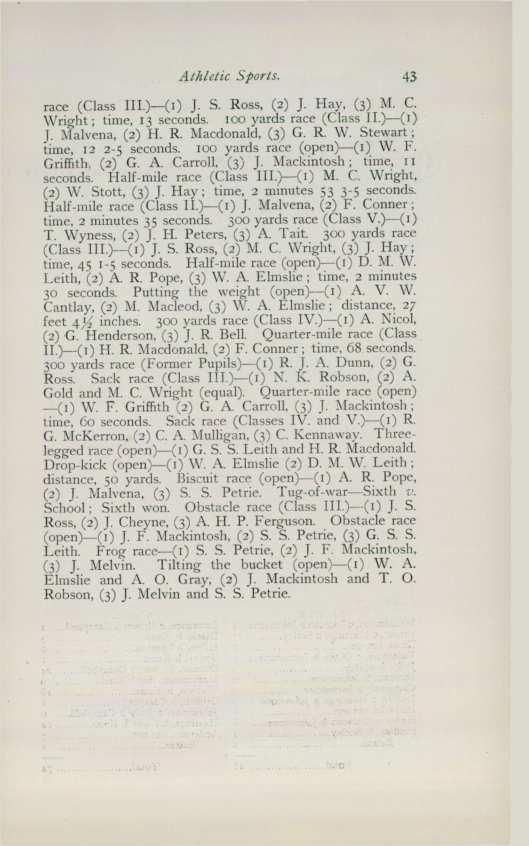 Athletic Sports. 43
race (Class III.)—(1) J. S. Ross, (2) J. Hay, (3) M. C.
Wright; time, 13 seconds. 100 yards race (Class II.)—(1)
J. Malvena, (2) H. R. Macdonald, (3) G. R. W. Stewart;
time, 12 2-5 seconds. 100 yards race (open)—(1) W. F.
Griffith, (2) G. A. Carroll, (3) J. Mackintosh; time, 11
seconds. Half-mile race (Class III.)—(1) M. C. Wright,
(2) W. Stott, (3) J. Hay; time, 2 minutes 53 3-5 seconds.
Half-mile race (Class II.)—(1) J. Malvena, (2) F. Conner;
time, 2 minutes 35 seconds. 300 yards race (Class V.)—(1)
T. Wyness, (2) J. H. Peters, (3) A. Tait. 300 yards race
(Class III.)—(1) J. S. Ross, (2) M. C. Wright, (3) J. Hay;
time, 45 1-5 seconds. Half-mile race (open)—(1) D. M. W.
Leith, (2) A. R. Pope, (3) W. A. Elmslie; time, 2 minutes
30 seconds. Putting the weight (open)—(1) A. V. W.
Cantlay, (2) M. Macleod, (3) W. A. Elmslie; distance, 27
feet 4½ inches. 300 yards race (Class IV.)—(1) A. Nicol,
(2) G. Henderson, (3) J. R. Bell. Quarter-mile race (Class
II.)—(1) H. R. Macdonald, (2) F. Conner; time, 68 seconds.
300 yards race (Former Pupils)—(1) R. J. A. Dunn, (2) G.
Ross. Sack race (Class III.)—(1) N. K. Robson, (2) A.
Gold and M. C. Wright (equal). Quarter-mile race (open)
—(1) W. F. Griffith (2) G. A. Carroll, (3) J. Mackintosh;
time, 60 seconds. Sack race (Classes IV. and V.)—(1) R.
G. McKerron, (2) C. A. Mulligan, (3) C. Kennaway. Three-
legged race (open)—(1) G. S. S. Leith and H. R. Macdonald.
Drop-kick (open)—(1) W. A. Elmslie (2) D. M. W. Leith;
distance, 50 yards. Biscuit race (open)—(1) A. R. Pope,
(2) J. Malvena, (3) S. S. Petrie. Tug-of-war—Sixth v.
School; Sixth won. Obstacle race (Class III.)—(1) J. S.
Ross, (2) J. Cheyne, (3) A. H. P. Ferguson. Obstacle race
(open)—(1) J. F. Mackintosh, (2) S. S. Petrie, (3) G. S. S.
Leith. Frog race—(1) S. S. Petrie, (2) J. F. Mackintosh,
(3) J. Melvin. Tilting the bucket (open)—(1) W. A.
Elmslie and A. O. Gray, (2) J. Mackintosh and T. O.
Robson, (3) J. Melvin and S. S. Petrie.